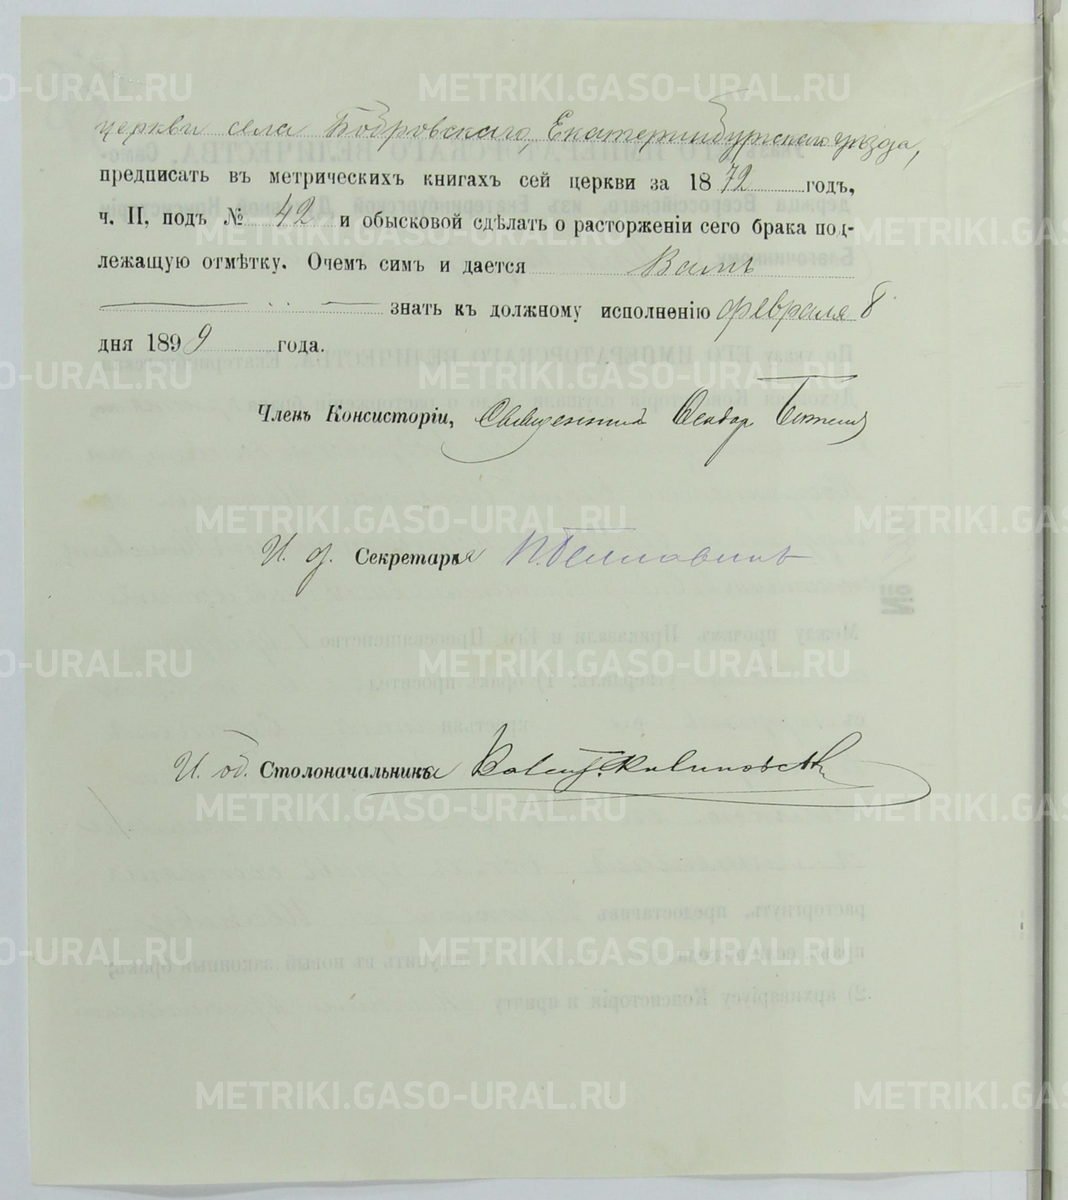 церкви села Бобровскаго, Екатеринбургскаго уѣзда,
предписать въ метрическихъ книгахъ сей церкви за 1872 годъ,
ч. II, подъ № 42 и обысковой сдѣлать о расторженіи сего брака под-
лежащую отмѣтку. Очемъ симъ и дается Вамъ
знать къ должному исполненію февраля 8
дня 1899 года.
Членъ Консисторіи, Священникъ Ѳеодоръ
И. д. Секретаря
И. об. Столоначальника
METRIKI.GASO-URAL.RU